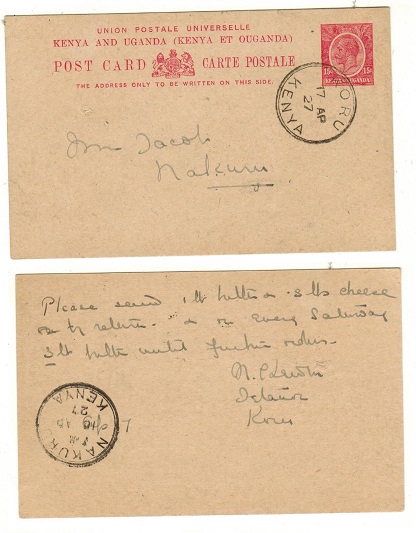 UNION POSTALE UNIVERSELLE
KENYA AND UGANDA (KENYA ET OUGANDA)
POST CARD CARTE POSTALE
THE ADDRESS ONLY TO BE WRITTEN ON THIS SIDE.
15 15
KENYA UGANDA
KORU
17 AP
27
KENYA
Jacob
Nakuru
Please send 1 lb butter & 3 lbs cheese
on by return. & on every Saturday
3 lb butter until further orders.
Koru
NAKURU
AP
27
KENYA